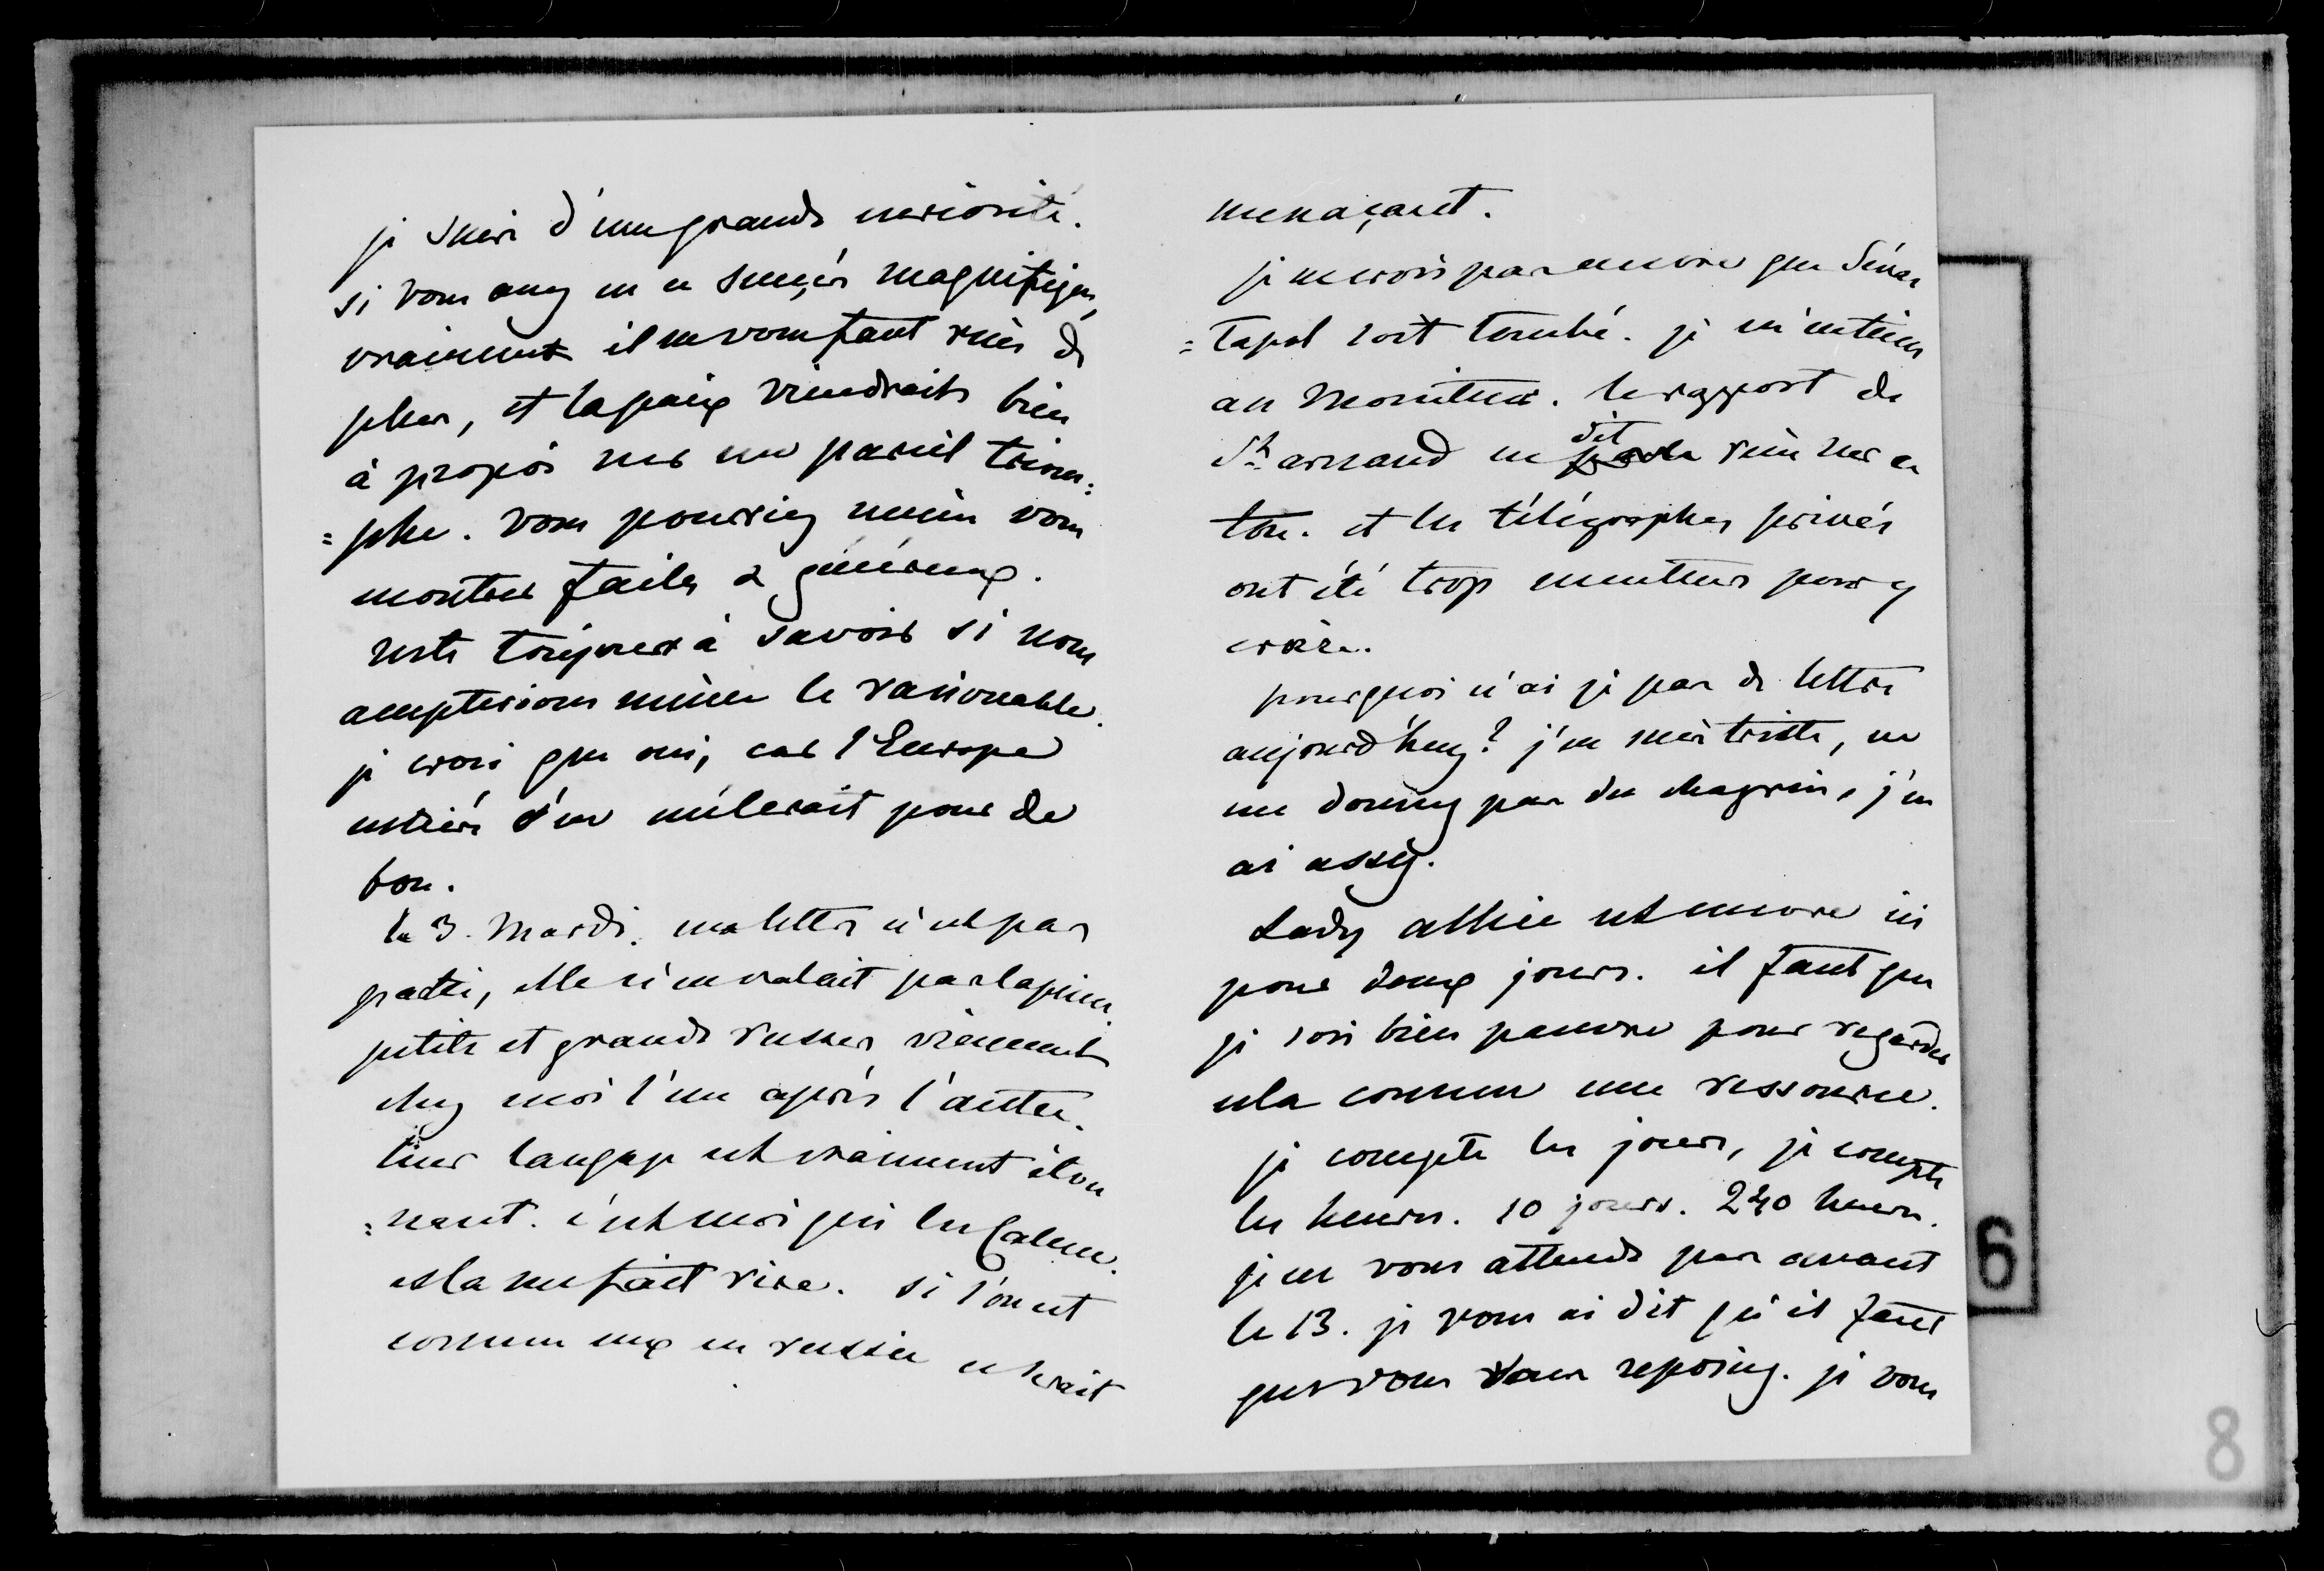 je suis d'une grande curiosité.
si vous avez eu ce succés magnifique,
vraiment il ne vous faut rien de
plus, et la paix viendrait bien
à propos sur un pareil triom=
=phe. vous pourriez même vous
montrer faciles & généreux.
reste toujours à savoir si nous
accepterions même le raisonnable.
je crois que oui, car l'Europe
entière s'en mêlerait pour de
bon.
le 3. Mardi. ma lettre n'est pas
partie, elle n'en valait pas la peine.
petits et grands russes viennent
chez moi l'un après l'autre.
leur langage est vraiment éton
=nant. c'est moi qui les calme.
cela me fait rire. si l'on est
comme eux en russie ce serait
menaçant.
je ne crois pas encore que Sévas
=tapol soit tombé. je m'en tiens
au Moniteur. le rapport de
St arnaud ne dit rien sur ce
ton. et les télégraphes privés
ont été trop menteurs pour y
croire.
pourquoi n'ai je pas de lettre
aujourd'huy? j'en suis triste, ne
me donnez pas du chagrin, j'en
ai assez.
Lady allice est encore ici
pour deux jours. il faut que
je sois bien pauvre pour regarder
cela comme une ressource.
je compte les jours, je compte
les heures. 10 jours. 240 heures.
je ne vous attends pas avant
le 13. je vous ai dit qu'il faut
que vous vous reposiez. je vous
6
8